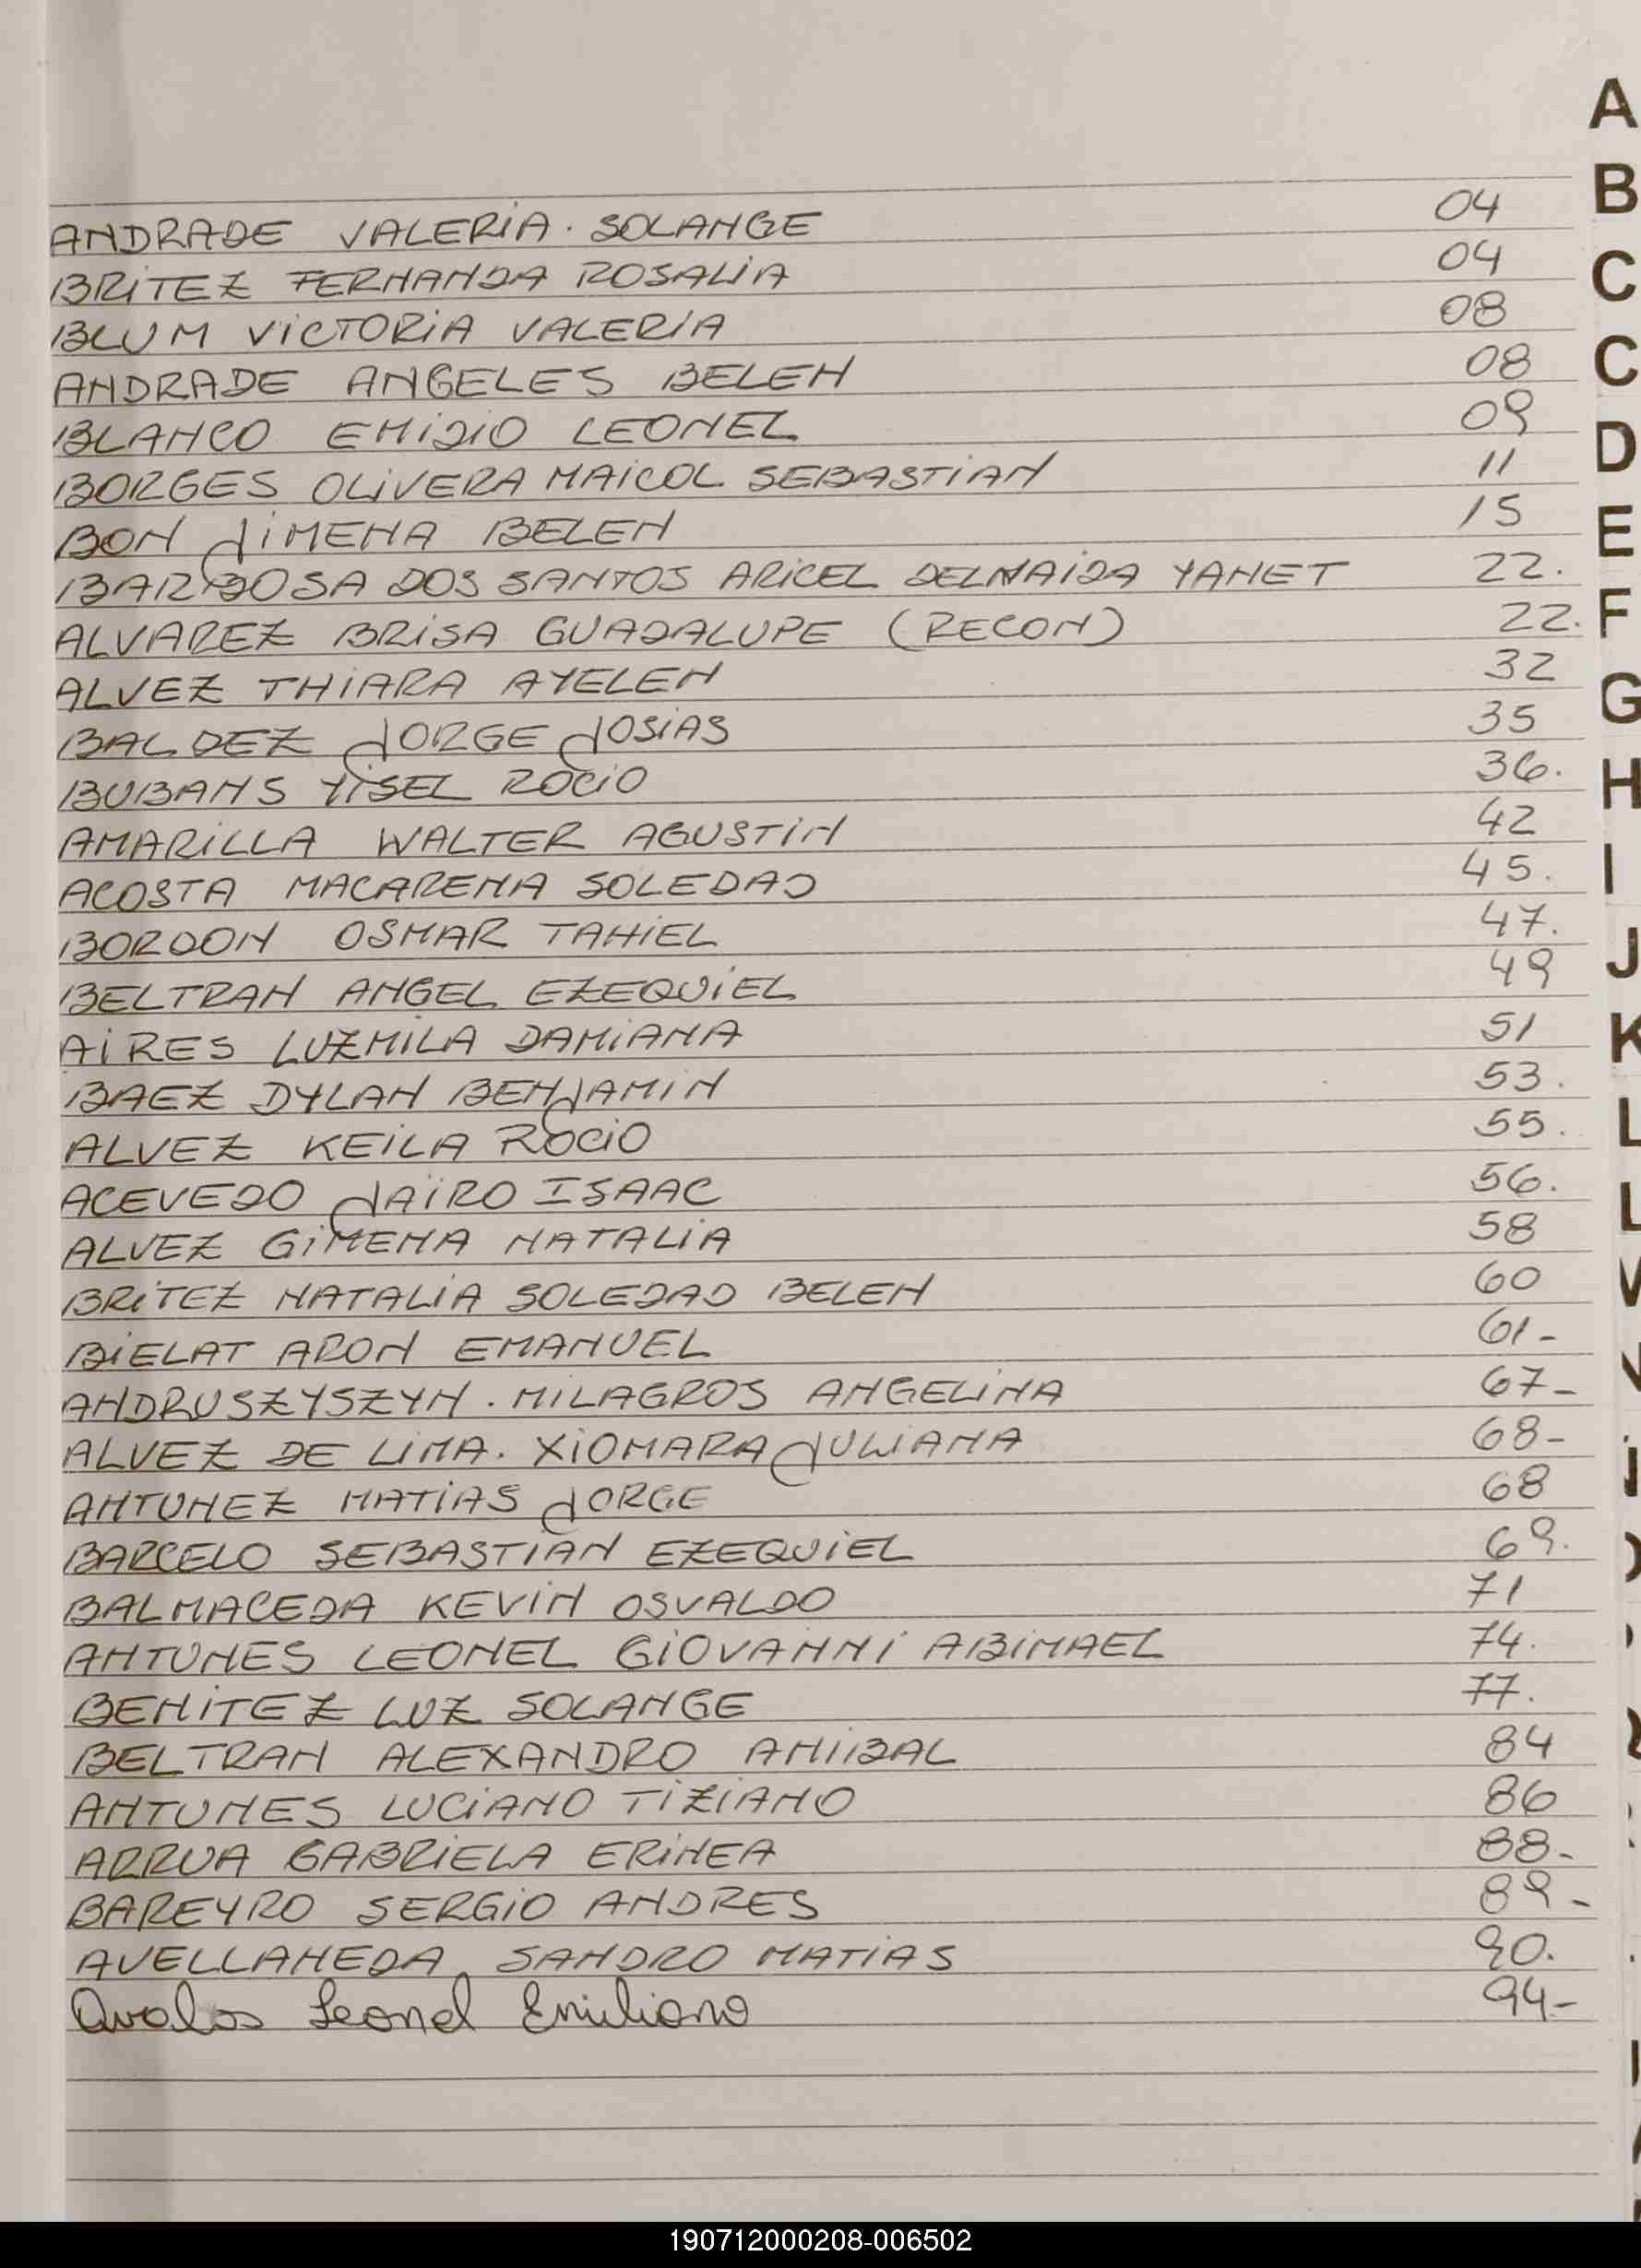 A
B
C
C
D
E
F
G
H
I
J
K
L
L
ANDRADE VALERIA. SOLANGE 04
BRITEZ FERNANDA ROSALIA 04
BLUM VICTORIA VALERIA 08
ANDRADE ANGELES BELEN 08
BLANCO EMIDIO LEONEL 09
BORGES OLIVERA MAICOL SEBASTIAN 11
BON JIMENA BELEN 15
BARBOSA DOS SANTOS ARICEL DELNAIDA YANET 22.
ALVAREZ BRISA GUADALUPE (RECON) 22.
ALVEZ THIARA AYELEN 32
BALDEZ JORGE JOSIAS 35
BUBANS YISEL ROCIO 36.
AMARILLA WALTER AGUSTIN 42
ACOSTA MACARENA SOLEDAD 45.
BORDON OSMAR TAHIEL 47.
BELTRAN ANGEL EZEQUIEL 49
AIRES LUZMILA DAMIANA 51
BAEZ DYLAN BENJAMIN 53.
ALVEZ KEILA ROCIO 55.
ACEVEDO JAIRO ISAAC 56.
ALVEZ GIMENA NATALIA 58
BRITEZ NATALIA SOLEDAD BELEN 60
BIELAT ARON EMANUEL 61-
ANDRUSZYSZYN. MILAGROS ANGELINA 67-
ALVEZ DE LIMA. XIOMARA JULIANA 68-
ANTUNEZ MATIAS JORGE 68
BARCELO SEBASTIAN EZEQUIEL 69.
BALMACEDA KEVIN OSVALDO 71
ANTUNES LEONEL GIOVANNI ABIMAEL 74.
BENITEZ LUZ SOLANGE 77.
BELTRAN ALEXANDRO ANIIBAL 84
ANTUNES LUCIANO TIZIANO 86
ARRUA GABRIELA ERINEA 88-
BAREYRO SERGIO ANDRES 89-
AVELLANEDA SANDRO MATIAS 90.
Avalos Leonel Emiliano 94-
190712000208-006502